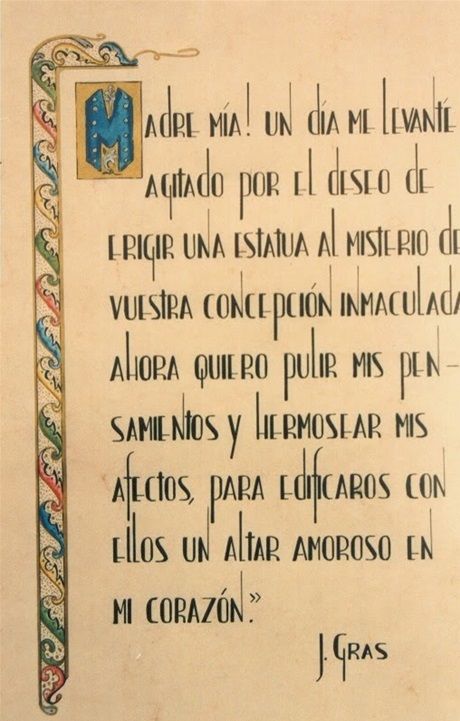 MADRE MÍA! UN DÍA ME LEVANTÉ
AGITADO POR EL DESEO DE
ERIGIR UNA ESTATUA AL MISTERIO DE
VUESTRA CONCEPCIÓN INMACULADA
AHORA QUIERO PULIR MIS PEN-
SAMIENTOS Y HERMOSEAR MIS
AFECTOS, PARA EDIFICAROS CON
ELLOS UN ALTAR AMOROSO EN
MI CORAZÓN."
J. GRAS